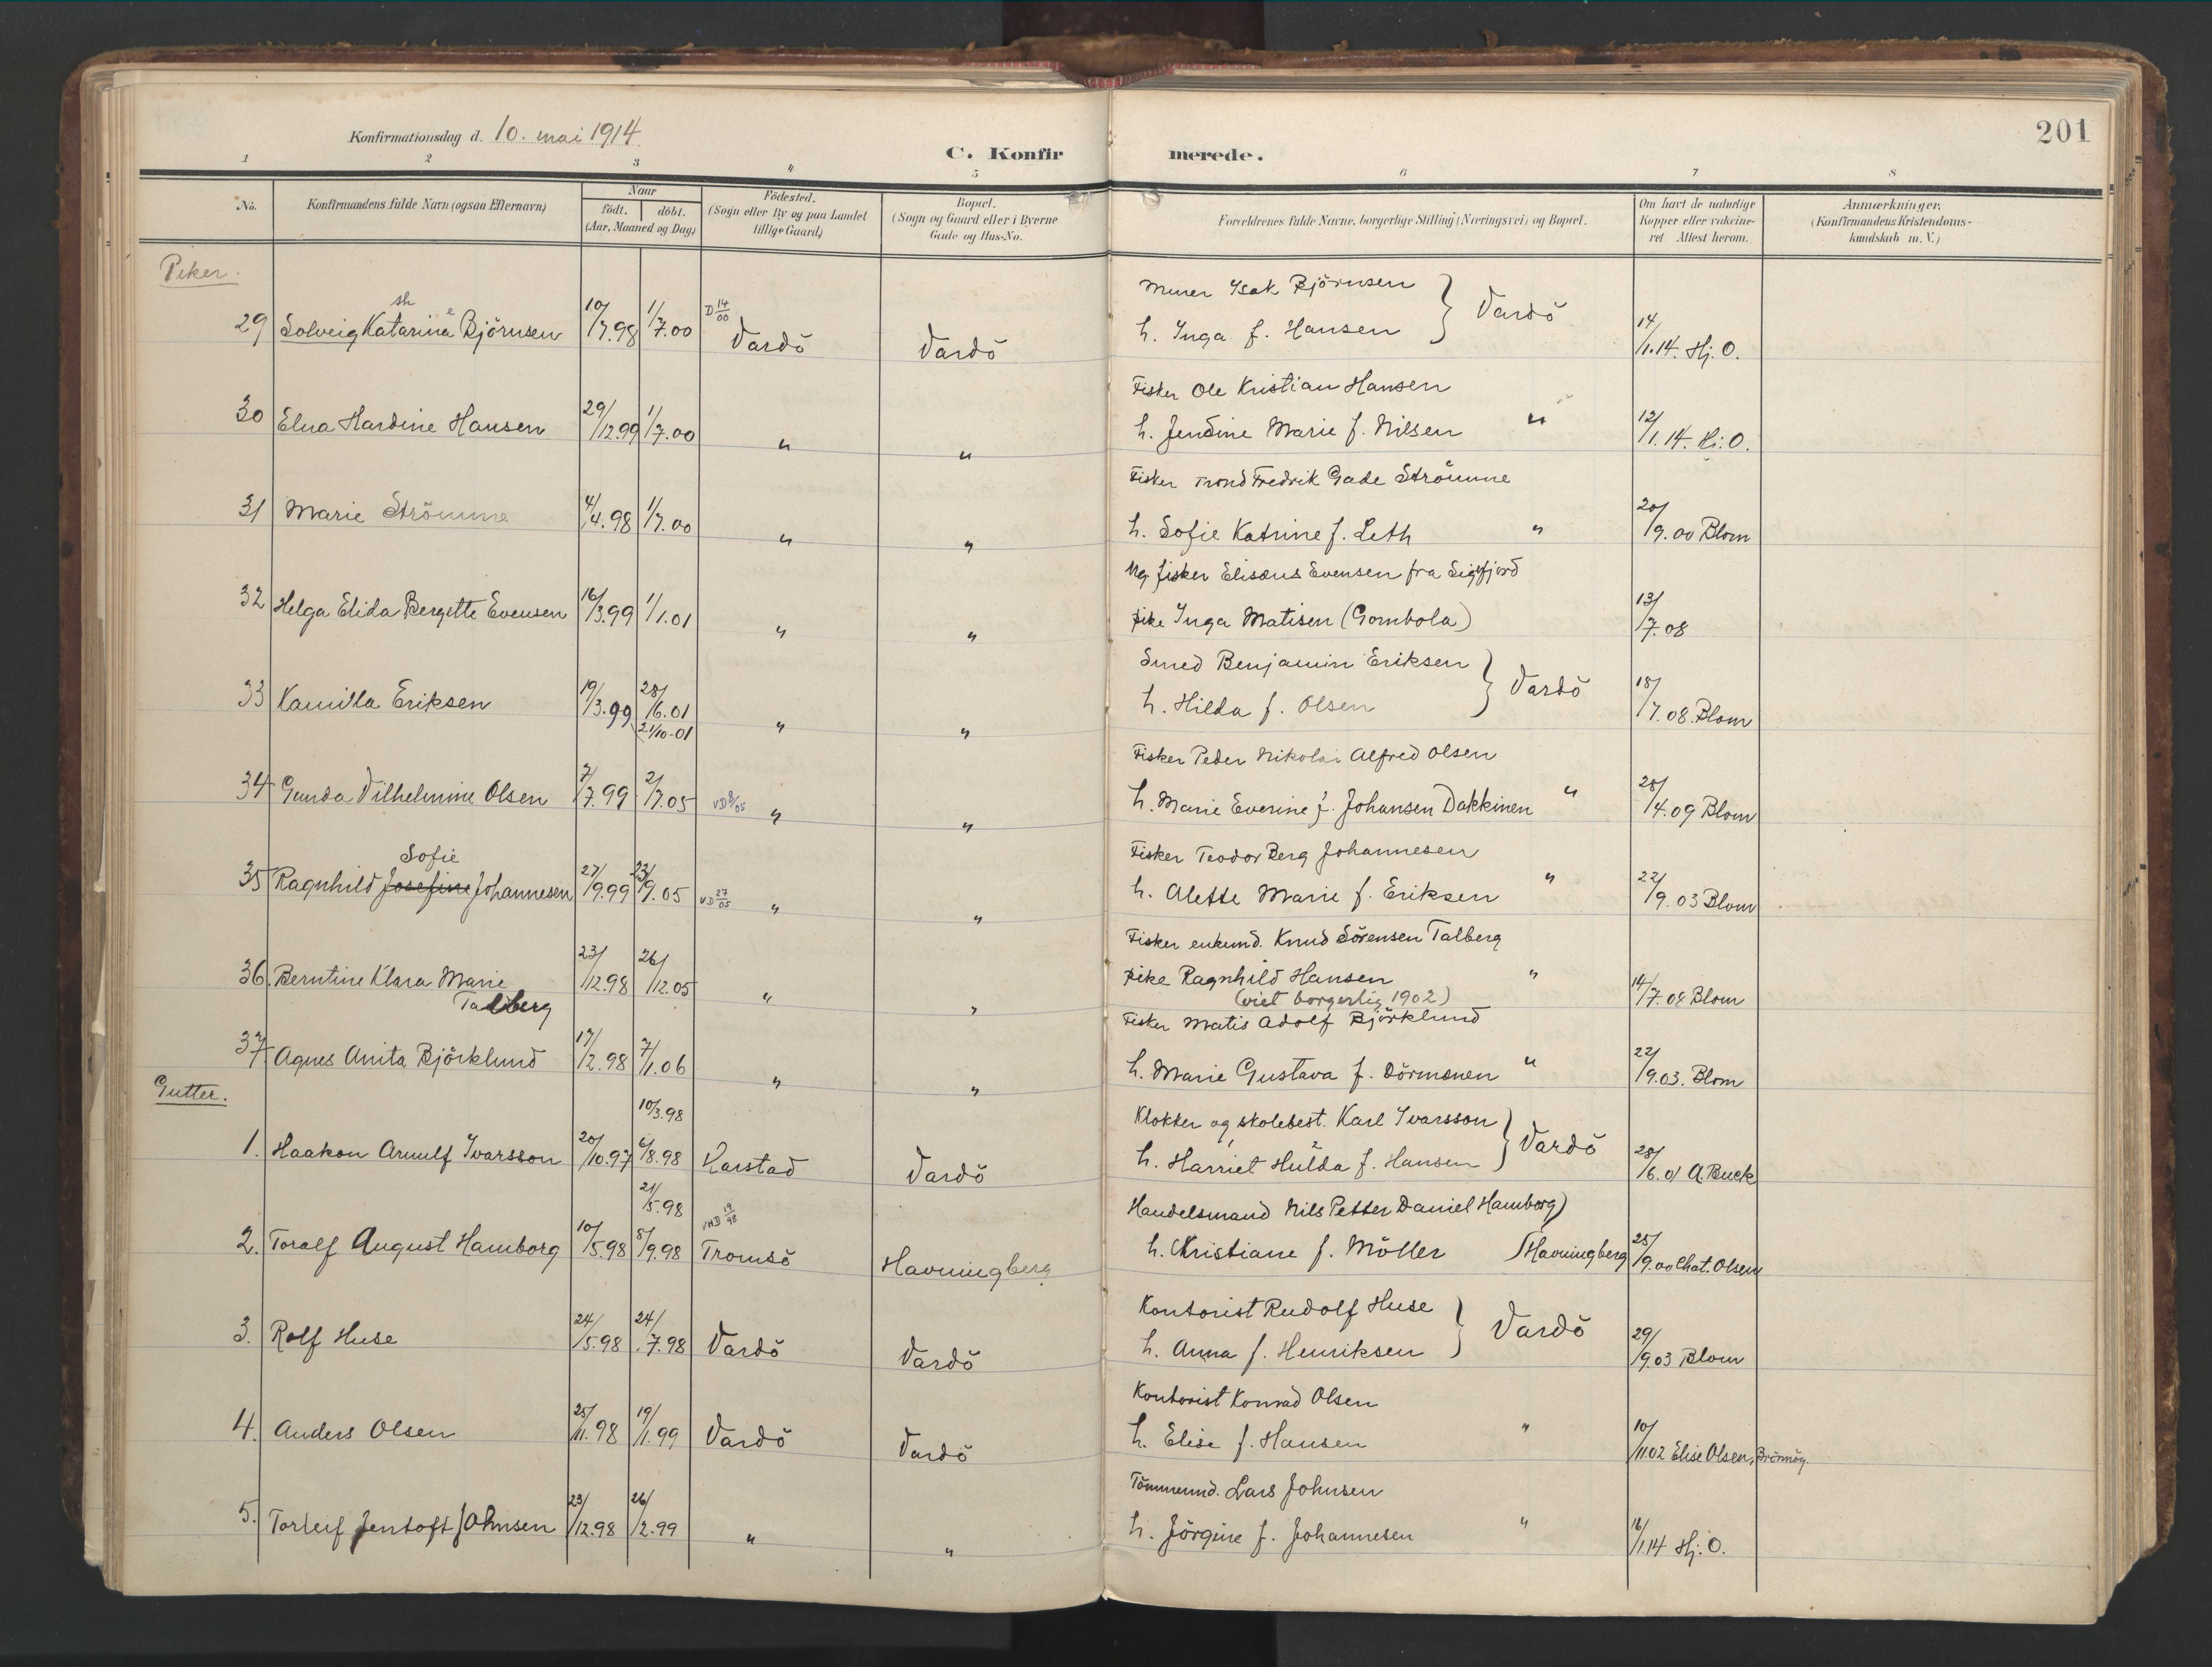 Konfirmationsdag d. 10. mai 1914
C. Konfirmerede.
201
1 2 3 4 5 6 7 8
No.
Konfirmandens fulde Navn (ogsaa Efternavn)
Naar
födt. döbt.
(Aar, Maaned og Dag)
Födested.
(Sogn eller By og paa Landet
tillige Gaard)
Bopæl.
(Sogn og Gaard eller i Byerne
Gade og Hus-No.
Forældrenes fulde Navne, borgerlige Stilling (Næringsvei) og Bopæl.
Om havt de naturlige
Kopper eller vakcine-
ret Attest herom.
Anmærkninger.
(Konfirmandens Kristendoms-
kundskab m. V.)
Piker.
29 Solveig Katarina Björnsen 10/7.98 1/7.00 D 14/00 Vardö Vardö
Murer Isak Björnsen
h. Inga f. Hansen } Vardö 14/1.14. Hj. O.
30 Elna Hardine Hansen 29/12.99 1/7.00 " "
Fisker Ole Kristian Hansen
h. Jendine Marie f. Nilsen " 12/1.14. Hj. O.
31 Marie Strömme 4/4.98 1/7.00 " "
Fisker Trond Fredrik Gade Strömme
h. Sofie Katrine f. Leth " 20/9.00 Blom
32 Helga Elida Bergette Evensen 16/3.99 1/1.01 " "
Ug. fisker Elisæus Evensen fra Sigfjord
pike Inga Matisen (Gombola) 13/7.08
33 Kamilla Eriksen 19/3.99 28/6.01 " "
21/10-01
Smed Benjamin Eriksen
h. Hilda f. Olsen } Vardö 18/7.08. Blom
34 Gunda Vilhelmine Olsen 7/7.99 2/7.05 VD 8/05 " "
Fisker Peder Nikolai Alfred Olsen
h. Marie Everine f. Johansen Dakkinen " 28/4.09 Blom
Sofie
35 Ragnhild Josefine Johannesen 27/9.99 23/9.05 VD 27/05 " "
Fisker Teodor Berg Johannesen
h. Alette Marie f. Eriksen " 22/9.03 Blom
36. Berntine Klara Marie 23/12.98 26/12.05 " "
Talberg
Fisker enkemd. Knud Sörensen Talberg
pike Ragnhild Hansen " 14/7.08 Blom
(viet borgerlig 1902)
37 Agnes Anita Björklund 17/12.98 7/1.06 " "
Fisker Matis Adolf Björklund
h. Marie Gustava f. Dörmænen " 22/9.03. Blom
Gutter.
10/3.98
1. Haakon Arnulf Ivarsson 20/10.97 6/8.98 Harstad Vardö
Klokker og skolebest. Karl Ivarsson
h. Harriet Hulda f. Hansen } Vardö 28/6.01 A. Buck
21/5.98
2. Toralf August Hamborg 10/5.98 8/9.98 VHD 19/98 Tromsö Havningberg
Handelsmand Nils Petter Daniel Hamborg
h. Kristiane f. Möller } Havningberg 25/9.00 Chat. Olsen
3. Rolf Huse 24/5.98 24/7.98 Vardö Vardö
Kontorist Rudolf Huse
h. Anna f. Henriksen } Vardö 29/9.03 Blom
4. Anders Olsen 25/11.98 19/1.99 Vardö Vardö
Kontorist Konrad Olsen
h. Elise f. Hansen " 10/11.02 Elise Olsen, Brönnög.
5. Torleif Jentoft Johnsen 23/12.98 26/2.99 " "
Tömmermd. Lars Johnsen
h. Jörgine f. Johannesen " 16/1.14 Hj. O.